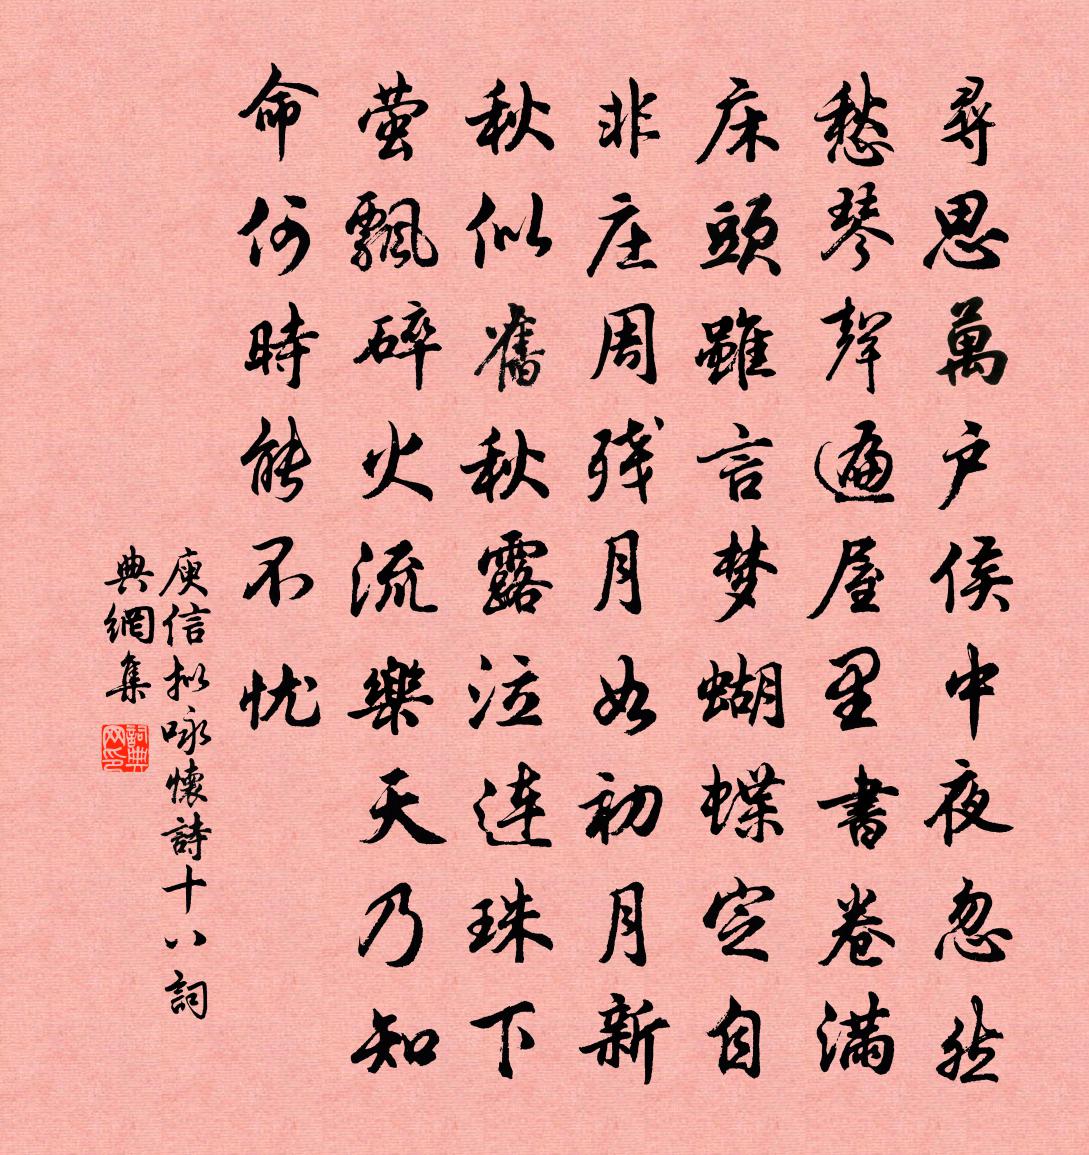 尋思萬户侯中夜忽然
愁琴聲遍屋里書卷滿
床頭雖言梦蝴蝶定自
非庄周残月如初月新
秋似舊秋露泣連珠下
萤飄碎火流樂天乃知
命何時能不忧
庾信拟咏懷詩十八詞
典網集
詞典网印